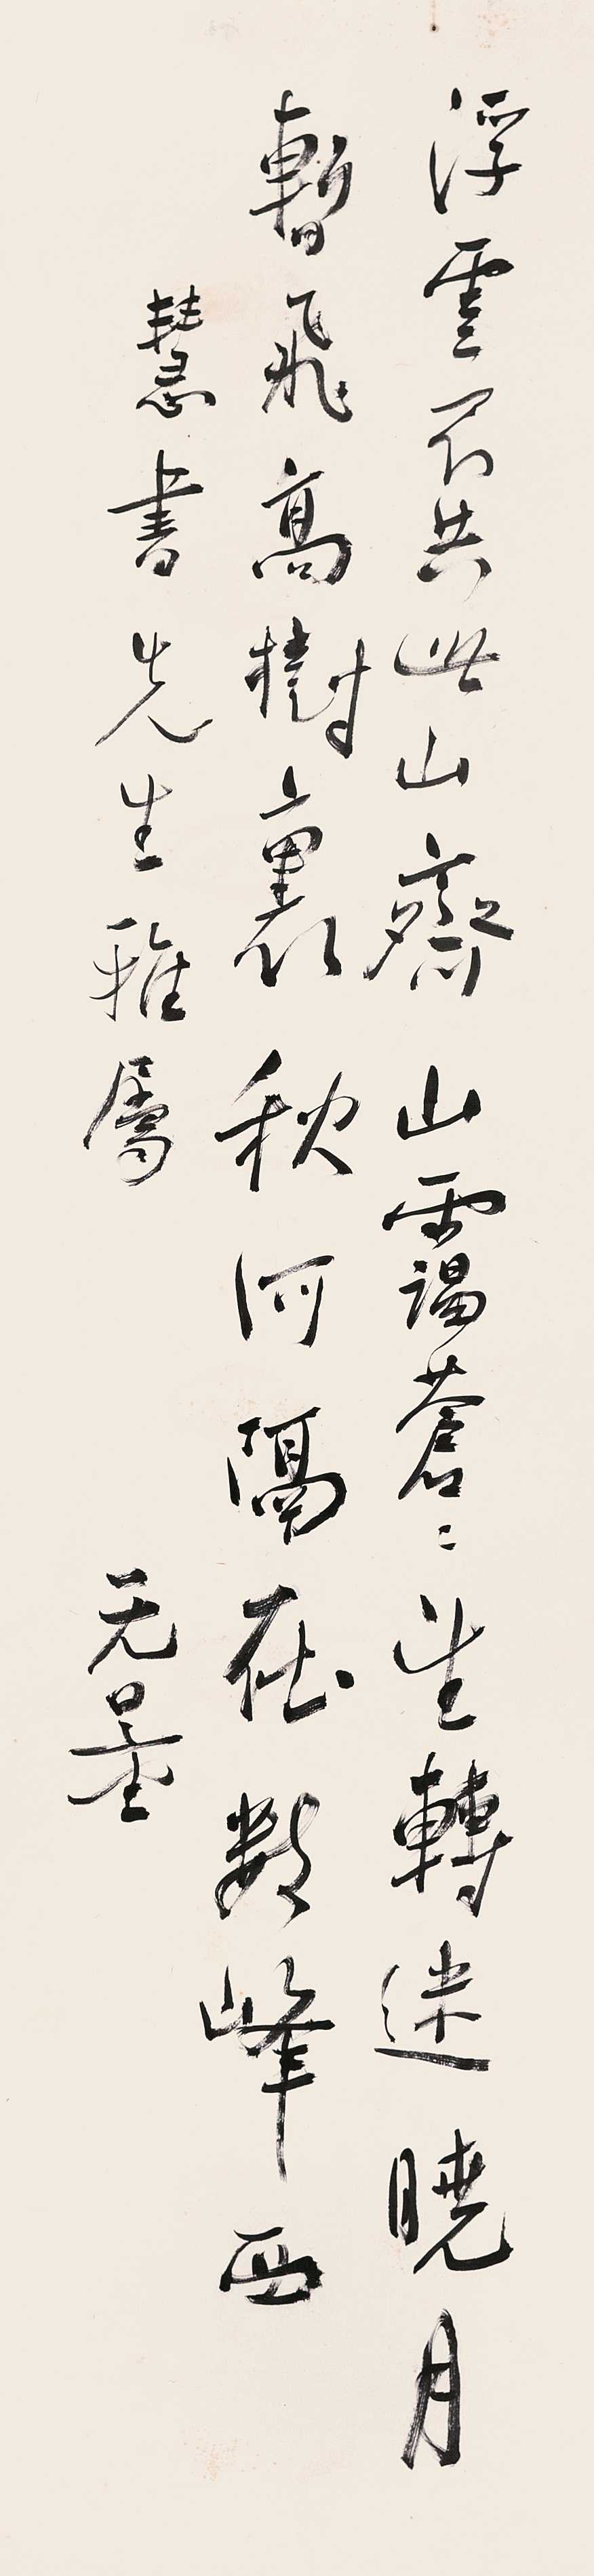 浮雲不共此山齊山靄蒼〻望轉迷曉月
暫飛高樹裏秋河隔在數峰西
慧書先生雅屬
无量